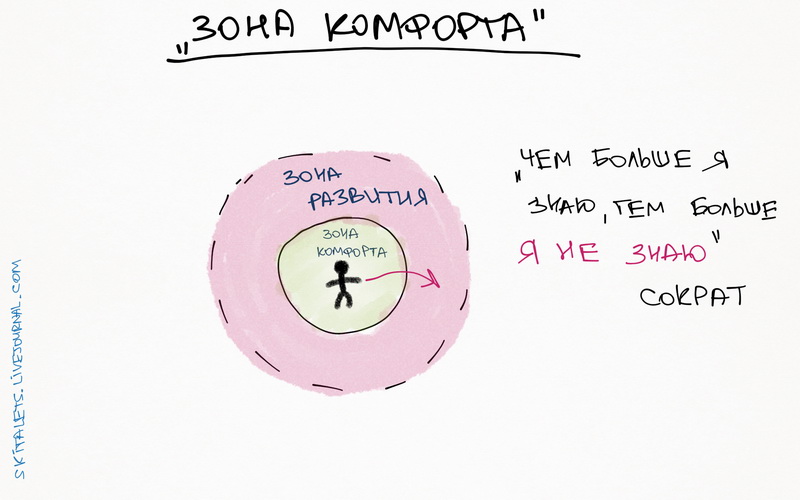 „ЗОНА КОМФОРТА"
ЗОНА
РАЗВИТИЯ
ЗОНА
КОМФОРТА
„ЧЕМ БОЛЬШЕ Я
ЗНАЮ, ТЕМ БОЛЬШЕ
Я НЕ ЗНАЮ"
СОКРАТ
SKITALETS.LIVEJOURNAL.COM